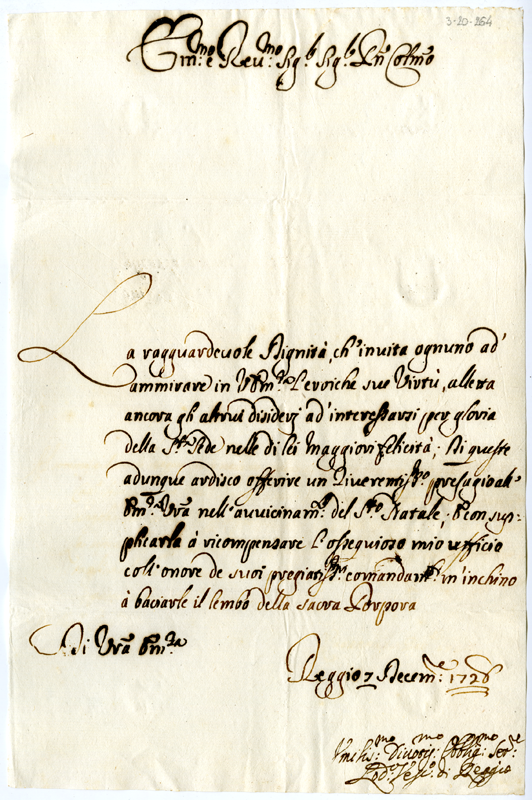 3-20-254
Em:mo e Rev:mo Sig:r Sig:r Pñe Colmo
La ragguardevole Dignità, ch'invita ognuno ad'
ammirare in V. Em:za l'eroiche sue Virtù, alletta
ancora gli altrui disiderj ad'interessarsi per gloria
della S:ta Sede nelle di lei maggiori felicità; Di queste
adunque ardisco offerire un Riverentiss:mo presagio all'
Em:za Vrã nell'avvicinam:to del S:to Natale; E con sup-
plicarla à ricompensare l'ossequioso mio ufficio
coll'onore de suoi pregiatiss:mi comandam:ti m'inchino
à baciarle il lembo della sacra Porpora
Di Vrã Em:za
Reggio 7 Decem:e 1726
Umilis:mo Divotis:mo Obblig:mo Ser:e
Lod:o Vesc:o di Reggio